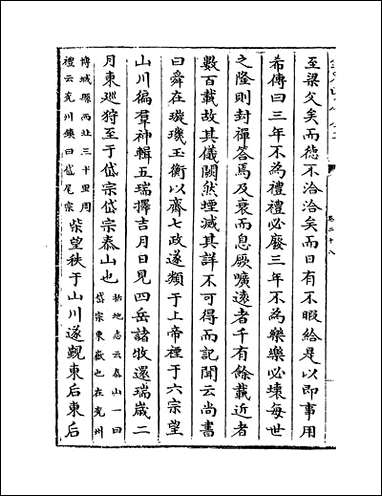 至梁父矣而德不洽洽矣而日有不暇給是以即事用
希傳曰三年不為禮禮必廢三年不為樂樂必壞每世
之隆則封禪答焉及衰而息厥曠遠者千有餘載近者
數百載故其儀闕然堙滅其詳不可得而記聞云尚書
曰舜在璇璣玉衡以齊七政遂類于上帝禋于六宗望
山川徧羣神輯五瑞擇吉月日見四岳諸牧還瑞歲二
月東巡狩至于岱宗岱宗泰山也
括地志云泰山一曰
岱宗東嶽也在兖州
博城縣西北三十里周
禮云兖州鎮曰岱尾宗
柴望秩于山川遂覲東后東后